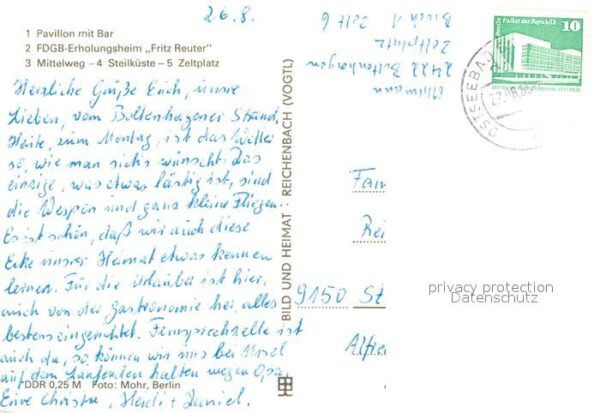 26.8.
1 Pavillon mit Bar
2 FDGB-Erholungsheim „Fritz Reuter"
3 Mittelweg – 4 Steilküste – 5 Zeltplatz
Herzliche Grüße Euch, unsre
Lieben, vom Boltenhagener Strand,
Heute, zum Montag, ist das Wetter
so, wie man sich's wünscht. Das
einzige, was etwas lästig ist, sind
die Wespen und ganz kleine Fliegen.
Es ist schön, daß wir auch diese
Ecke unsrer Heimat etwas kennen
lernen. Für die Urlauber ist hier,
auch von der Gastronomie her, alles
bestens eingerichtet. Fernsprechzelle ist
auch da, so können wir uns bei
auf dem Laufenden halten wegen Opa.
Eure Christa, Heidi + Daniel.
DDR 0,25 M Foto: Mohr, Berlin
BILD UND HEIMAT REICHENBACH (VOGTL)
2422 Boltenhagen
Zeltplatz
Berlin · Palast der Republik
10
OSTSEEBAD
Fam
Rei
9150 St
Alfre
privacy protection
Datenschutz